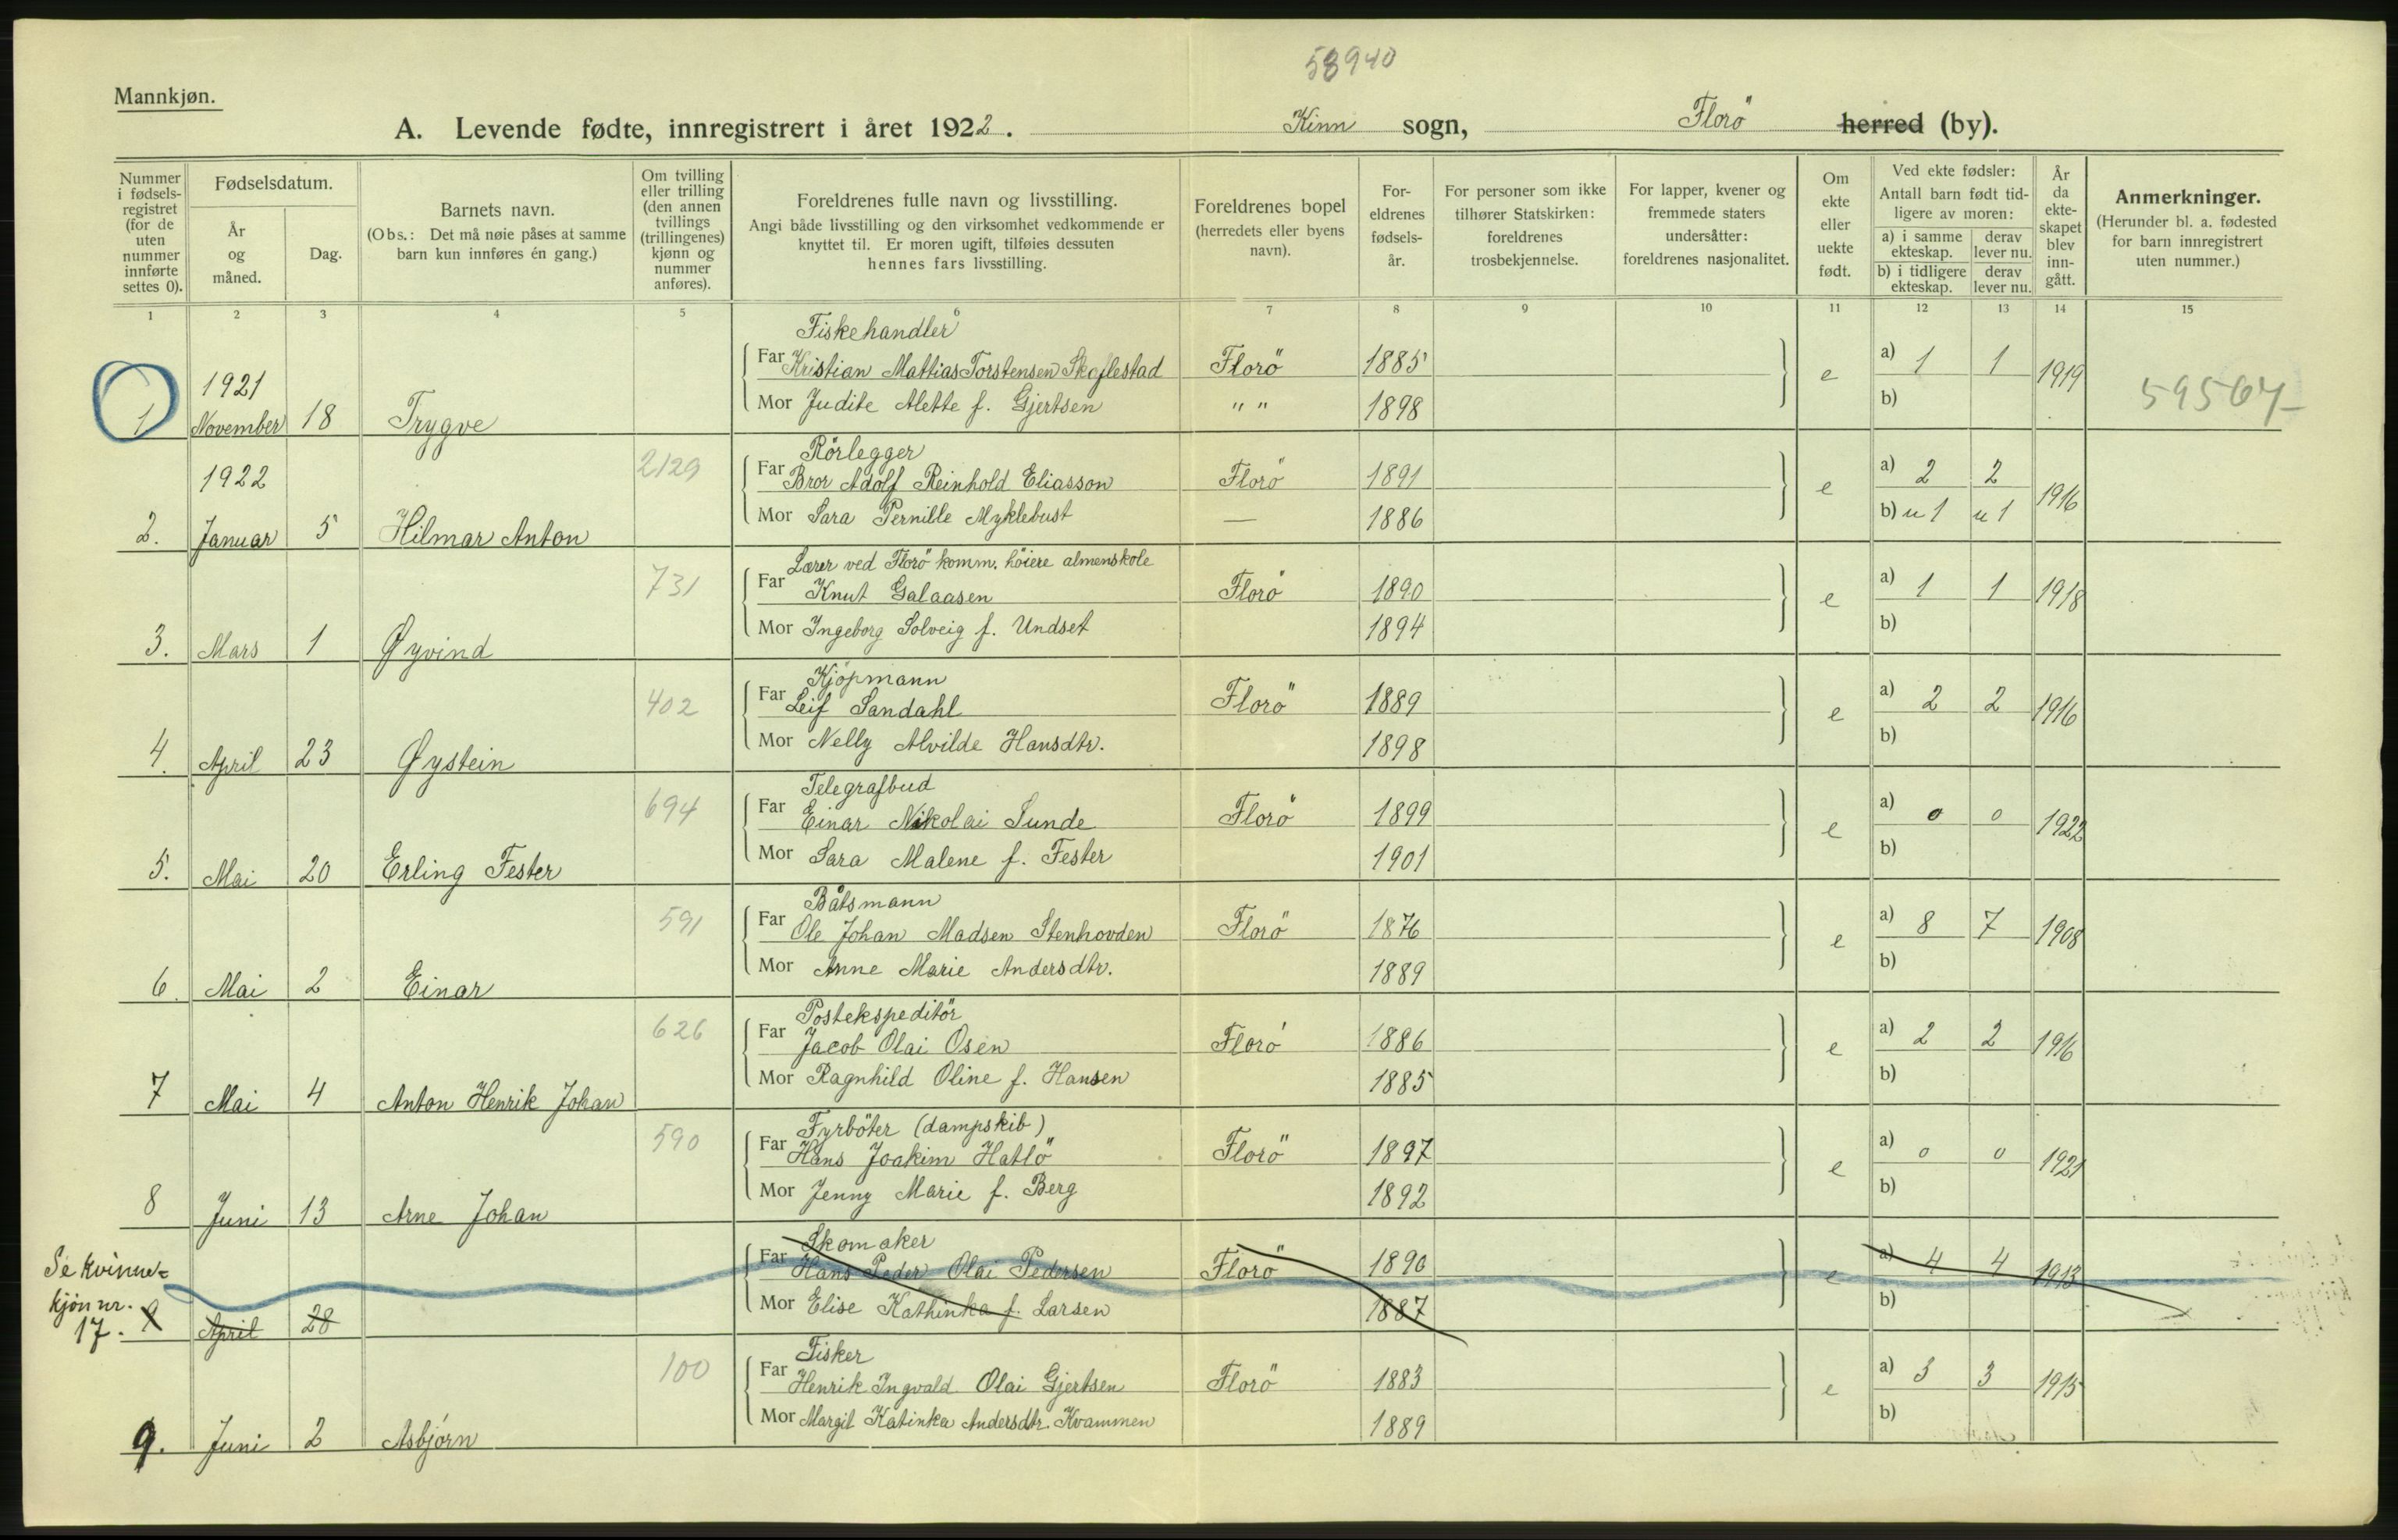 58940
Mannkjøn.
A. Levende fødte, innregistrert i året 1922. Kinn sogn, Florö herred (by).
Nummer i fødselsregistret (for de uten nummer innførte settes 0).
Fødselsdatum.
År og måned.
Dag.
Barnets navn.
(Obs.: Det må nøie påses at samme barn kun innføres én gang.)
Om tvilling eller trilling (den annen tvillings (trillingenes) kjønn og nummer anføres).
Foreldrenes fulle navn og livsstilling.
Angi både livsstilling og den virksomhet vedkommende er knyttet til. Er moren ugift, tilføies dessuten hennes fars livsstilling.
Foreldrenes bopel (herredets eller byens navn).
Foreldrenes fødselsår.
For personer som ikke tilhører Statskirken: foreldrenes trosbekjennelse.
For lapper, kvener og fremmede staters undersåtter: foreldrenes nasjonalitet.
Om ekte eller uekte født.
Ved ekte fødsler: Antall barn født tidligere av moren:
a) i samme ekteskap. derav lever nu.
b) i tidligere ekteskap. derav lever nu.
År da ekteskapet blev inngått.
Anmerkninger.
(Herunder bl. a. fødested for barn innregistrert uten nummer.)
1 2 3 4 5 6 7 8 9 10 11 12 13 14 15
Fiskehandler
1921 Far Kristian Mattias Torstensen Skoflestad Florö 1885 e a) 1 1 1919 59567
1 November 18 Trygve Mor Judite Alette f. Gjertsen " " 1898 b)
Rörlegger
1922 2129 Far Bror Adolf Reinhold Eliasson Florö 1891 e a) 2 2 1916
2. Januar 5 Hilmar Anton Mor Sara Pernille Myklebust — 1886 b) u 1 u 1
Lærer ved Florö komm. höiere almenskole
731 Far Knut Galaasen Florö 1890 e a) 1 1 1918
3. Mars 1 Øyvind Mor Ingeborg Solveig f. Undset 1894 b)
Kjöpmann
402 Far Leif Sandahl Florö 1889 e a) 2 2 1916
4. April 23 Øystein Mor Nelly Alvilde Hansdtr. 1898 b)
Telegrafbud
694 Far Einar Nikolai Sunde Florö 1899 e a) 0 0 1922
5. Mai 20 Erling Fester Mor Sara Malene f. Fester 1901 b)
Båtsmann
591 Far Ole Johan Madsen Stenhovden Florö 1876 e a) 8 7 1908
6. Mai 2 Einar Mor Anne Marie Andersdtr. 1889 b)
Postekspeditör
626 Far Jacob Olai Osen Florö 1886 e a) 2 2 1916
7 Mai 4 Anton Henrik Johan Mor Ragnhild Oline f. Hansen 1885 b)
Fyrböter (dampskib)
590 Far Hans Joakim Hatlö Florö 1897 e a) 0 0 1921
8 Juni 13 Arne Johan Mor Jenny Marie f. Berg 1892 b)
Skomaker
Se kvinne- Far Hans Peder Olai Pedersen Florö 1890 e a) 4 4 1913
kjön nr. Mor Elise Kathinka f. Larsen 1887 b)
17. 9 April 28
Fisker
100 Far Henrik Ingvald Olai Gjertsen Florö 1883 e a) 3 3 1915
9. Juni 2 Asbjörn Mor Margit Katinka Andersdtr. Kvammen 1889 b)